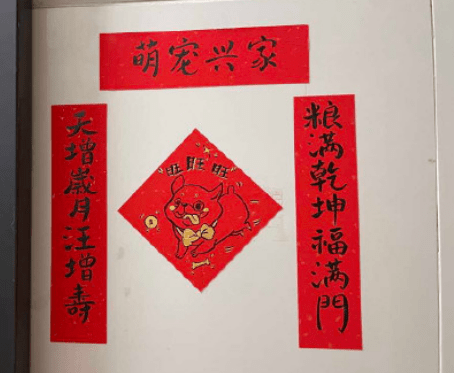 萌宠兴家
粮满乾坤福满門
天增歲月汪增壽
旺旺旺